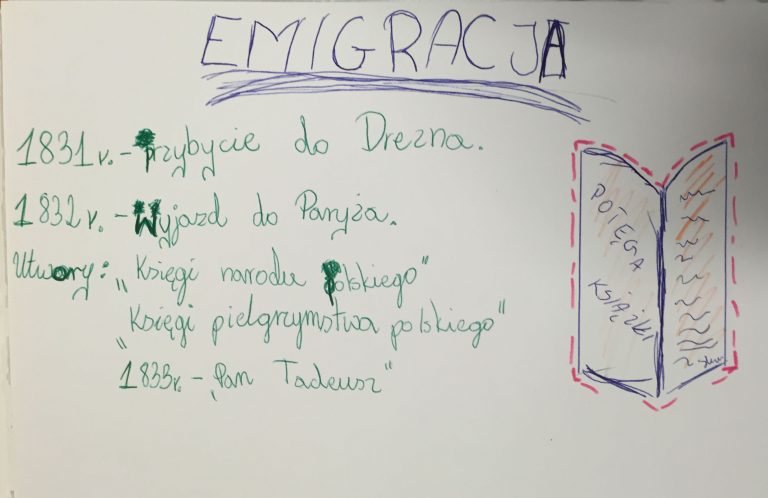 EMIGRACJA
1831r. - Przybycie do Drezna.
1832r. - Wyjazd do Paryża.
Utwory: „Księgi narodu Polskiego"
„Księgi pielgrzymstwa polskiego"
1833r. - „Pan Tadeusz"
POTĘGA
KSIĄŻKI